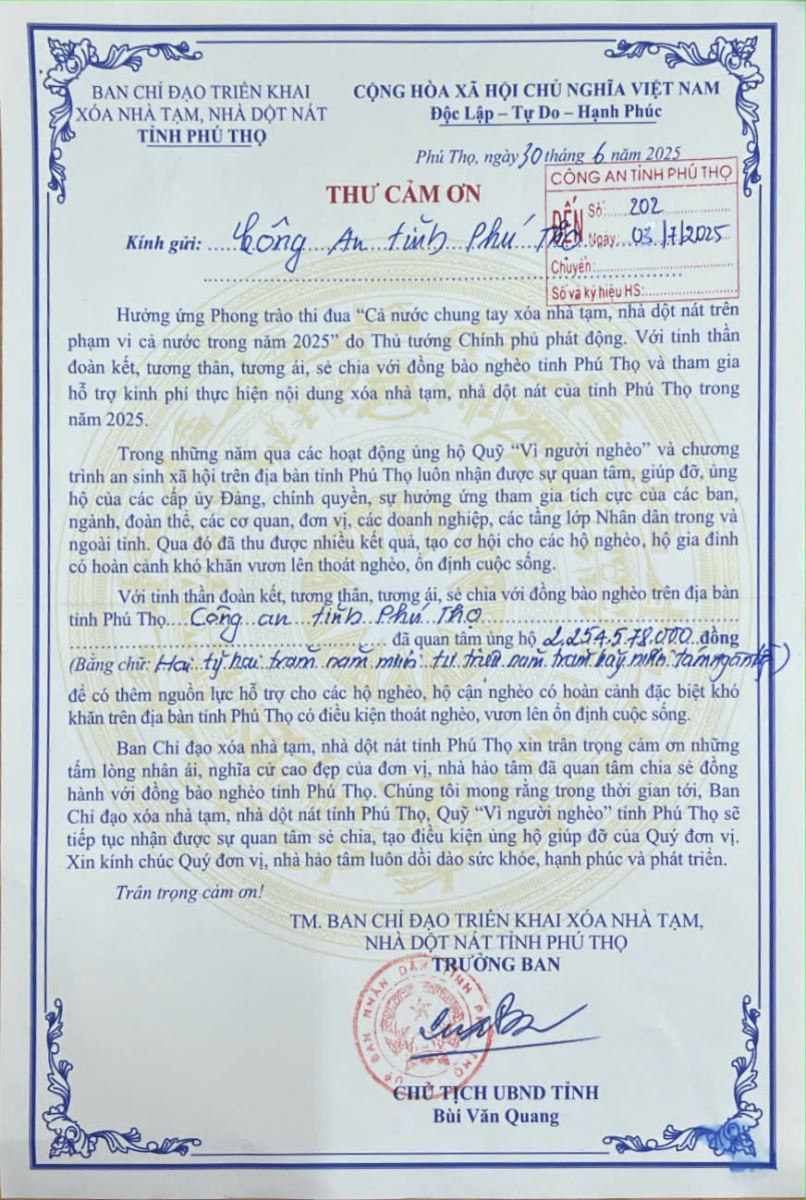 BAN CHỈ ĐẠO TRIỂN KHAI
XÓA NHÀ TẠM, NHÀ DỘT NÁT
TỈNH PHÚ THỌ
CỘNG HÒA XÃ HỘI CHỦ NGHĨA VIỆT NAM
Độc Lập – Tự Do – Hạnh Phúc
Phú Thọ, ngày 30 tháng 6 năm 2025
CÔNG AN TỈNH PHÚ THỌ
ĐẾN
Số: 202
Ngày: 03/7/2025
Chuyển:
Số và ký hiệu HS:
THƯ CẢM ƠN
Kính gửi: Công An tỉnh Phú Thọ
Hưởng ứng Phong trào thi đua “Cả nước chung tay xóa nhà tạm, nhà dột nát trên
phạm vi cả nước trong năm 2025” do Thủ tướng Chính phủ phát động. Với tinh thần
đoàn kết, tương thân, tương ái, sẻ chia với đồng bào nghèo tỉnh Phú Thọ và tham gia
hỗ trợ kinh phí thực hiện nội dung xóa nhà tạm, nhà dột nát của tỉnh Phú Thọ trong
năm 2025.
Trong những năm qua các hoạt động ủng hộ Quỹ “Vì người nghèo” và chương
trình an sinh xã hội trên địa bàn tỉnh Phú Thọ luôn nhận được sự quan tâm, giúp đỡ, ủng
hộ của các cấp ủy Đảng, chính quyền, sự hưởng ứng tham gia tích cực của các ban,
ngành, đoàn thể, các cơ quan, đơn vị, các doanh nghiệp, các tầng lớp Nhân dân trong và
ngoài tỉnh. Qua đó đã thu được nhiều kết quả, tạo cơ hội cho các hộ nghèo, hộ gia đình
có hoàn cảnh khó khăn vươn lên thoát nghèo, ổn định cuộc sống.
Với tinh thần đoàn kết, tương thân, tương ái, sẻ chia với đồng bào nghèo trên địa bàn
tỉnh Phú Thọ Công an tỉnh Phú Thọ
đã quan tâm ủng hộ 2.254.578.000 đồng
(Bằng chữ: Hai tỷ hai trăm năm mươi tư triệu năm trăm bảy mươi tám ngàn )
để có thêm nguồn lực hỗ trợ cho các hộ nghèo, hộ cận nghèo có hoàn cảnh đặc biệt khó
khăn trên địa bàn tỉnh Phú Thọ có điều kiện thoát nghèo, vươn lên ổn định cuộc sống.
Ban Chỉ đạo xóa nhà tạm, nhà dột nát tỉnh Phú Thọ xin trân trọng cảm ơn những
tấm lòng nhân ái, nghĩa cử cao đẹp của đơn vị, nhà hảo tâm đã quan tâm chia sẻ đồng
hành với đồng bào nghèo tỉnh Phú Thọ. Chúng tôi mong rằng trong thời gian tới, Ban
Chỉ đạo xóa nhà tạm, nhà dột nát tỉnh Phú Thọ, Quỹ “Vì người nghèo” tỉnh Phú Thọ sẽ
tiếp tục nhận được sự quan tâm sẻ chia, tạo điều kiện ủng hộ giúp đỡ của Quý đơn vị.
Xin kính chúc Quý đơn vị, nhà hảo tâm luôn dồi dào sức khỏe, hạnh phúc và phát triển.
Trân trọng cảm ơn!
TM. BAN CHỈ ĐẠO TRIỂN KHAI XÓA NHÀ TẠM,
NHÀ DỘT NÁT TỈNH PHÚ THỌ
TRƯỞNG BAN
ỦY BAN NHÂN DÂN TỈNH PHÚ THỌ
CHỦ TỊCH UBND TỈNH
Bùi Văn Quang